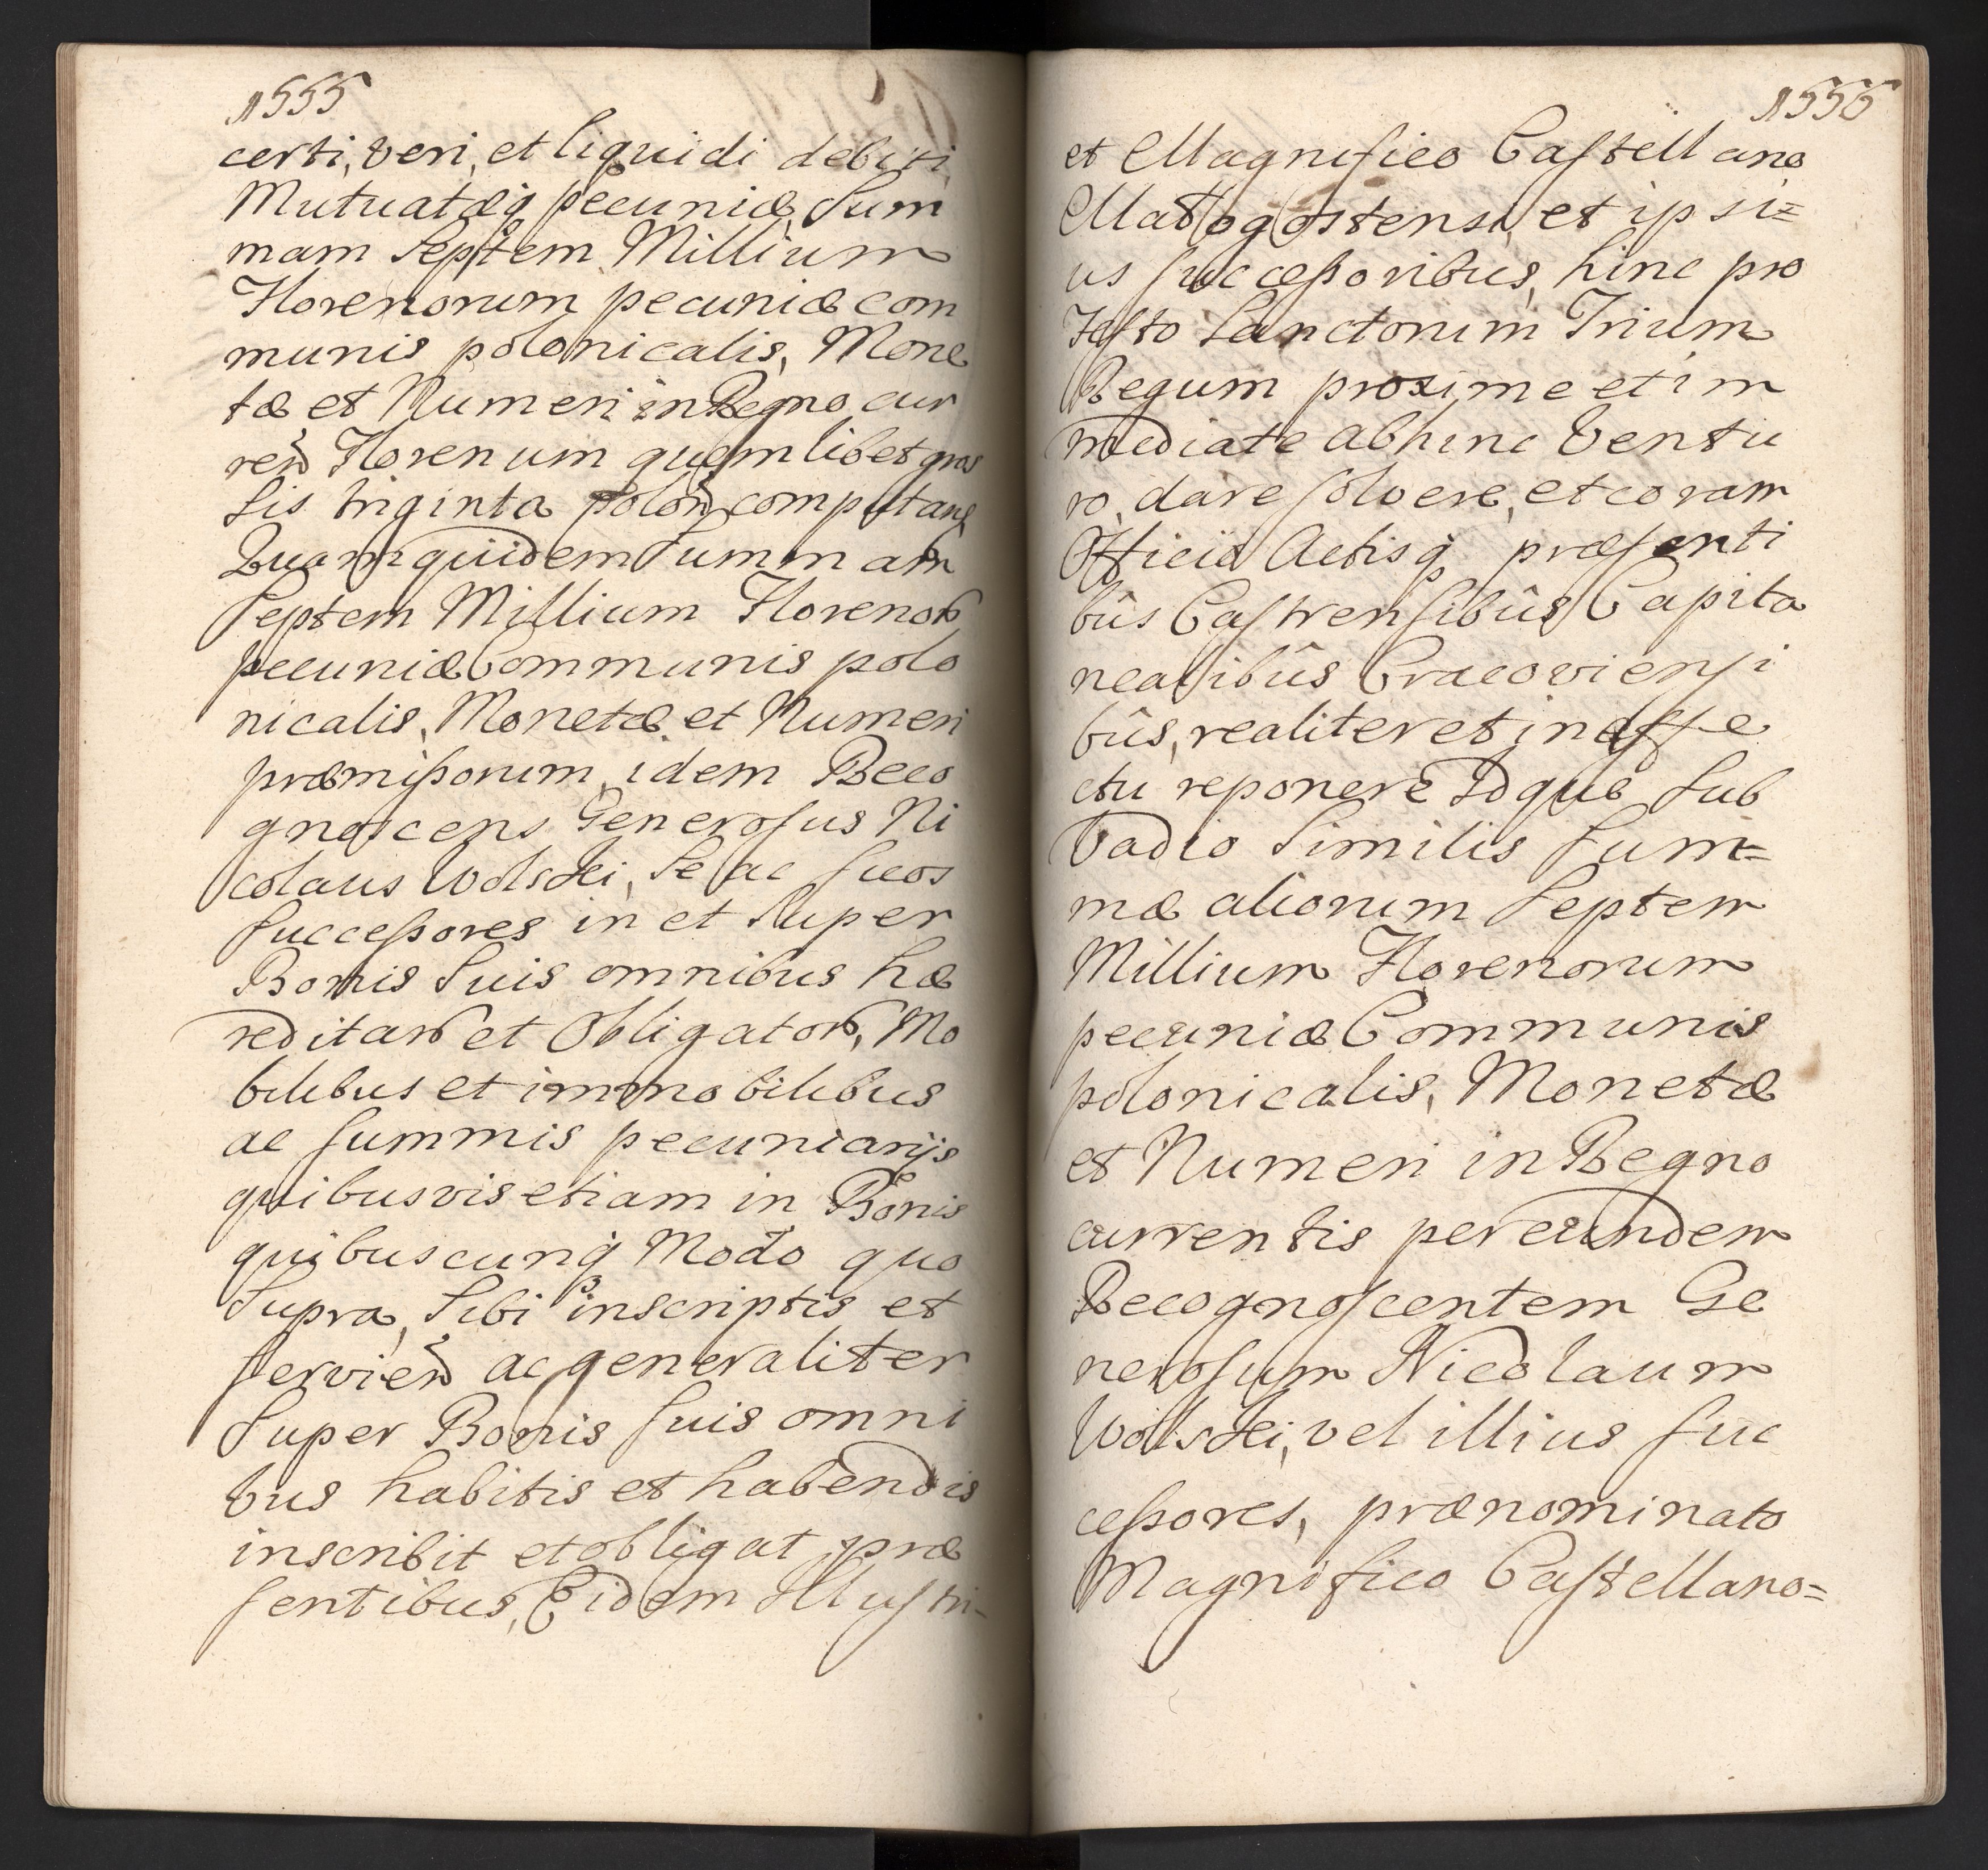 1555
certi, veri, et liquidi debiti,
Mutuatæq pecuniæ, Sum
mam Septem Millium
Florenorum pecuniæ com
munis polonicalis, Mone
tæ et Numeri in Regno cur
ren Florenum quemlibet gros
sis triginta polon computan
Quam quidem Summam
Septem Millium Florenor
pecuniæ Communis polo
nicalis, Monetæ et Numeri
præmissorum, idem Reco
gnoscens Generosus Ni
colaus Wolski, Se ac suos
Successores in et Super
Bonis Suis omnibus hæ
reditar et Obligator, Mo
bilibus et immobilibus
ac summis pecuniarijs
quibusvis etiam in Bonis
quibuscunq Modo quo
Supra, Sibi inscriptis et
servien ac generaliter
Super Bonis suis omni
bus habitis et habendis
inscribit et obligat præ
sentibus, Eidem Illustri-
1556
et Magnifico Castellano
Małogostensi, et ipsi=
us successoribus, hinc pro
Festo Sanctorum Trium
Regum proxime et im
mediate abhinc Ventu
ro, dare solvere, et coram
Officio Actisq præsenti
bûs Castrensibûs Capita
nealibûs Cracoviensi
bûs, realiter et in effe
ctu reponere Idque Sub
Vadio Similis Sum=
mæ aliorum Septem
Millium Florenorum
pecuniæ Communis
polonicalis, Monetæ
et Numeri in Regno
currentis per eundem
Recognoscentem Ge
nerosum Nicolaum
Wolski, vel illius suc
cessores, prænominato
Magnifico Castellano=